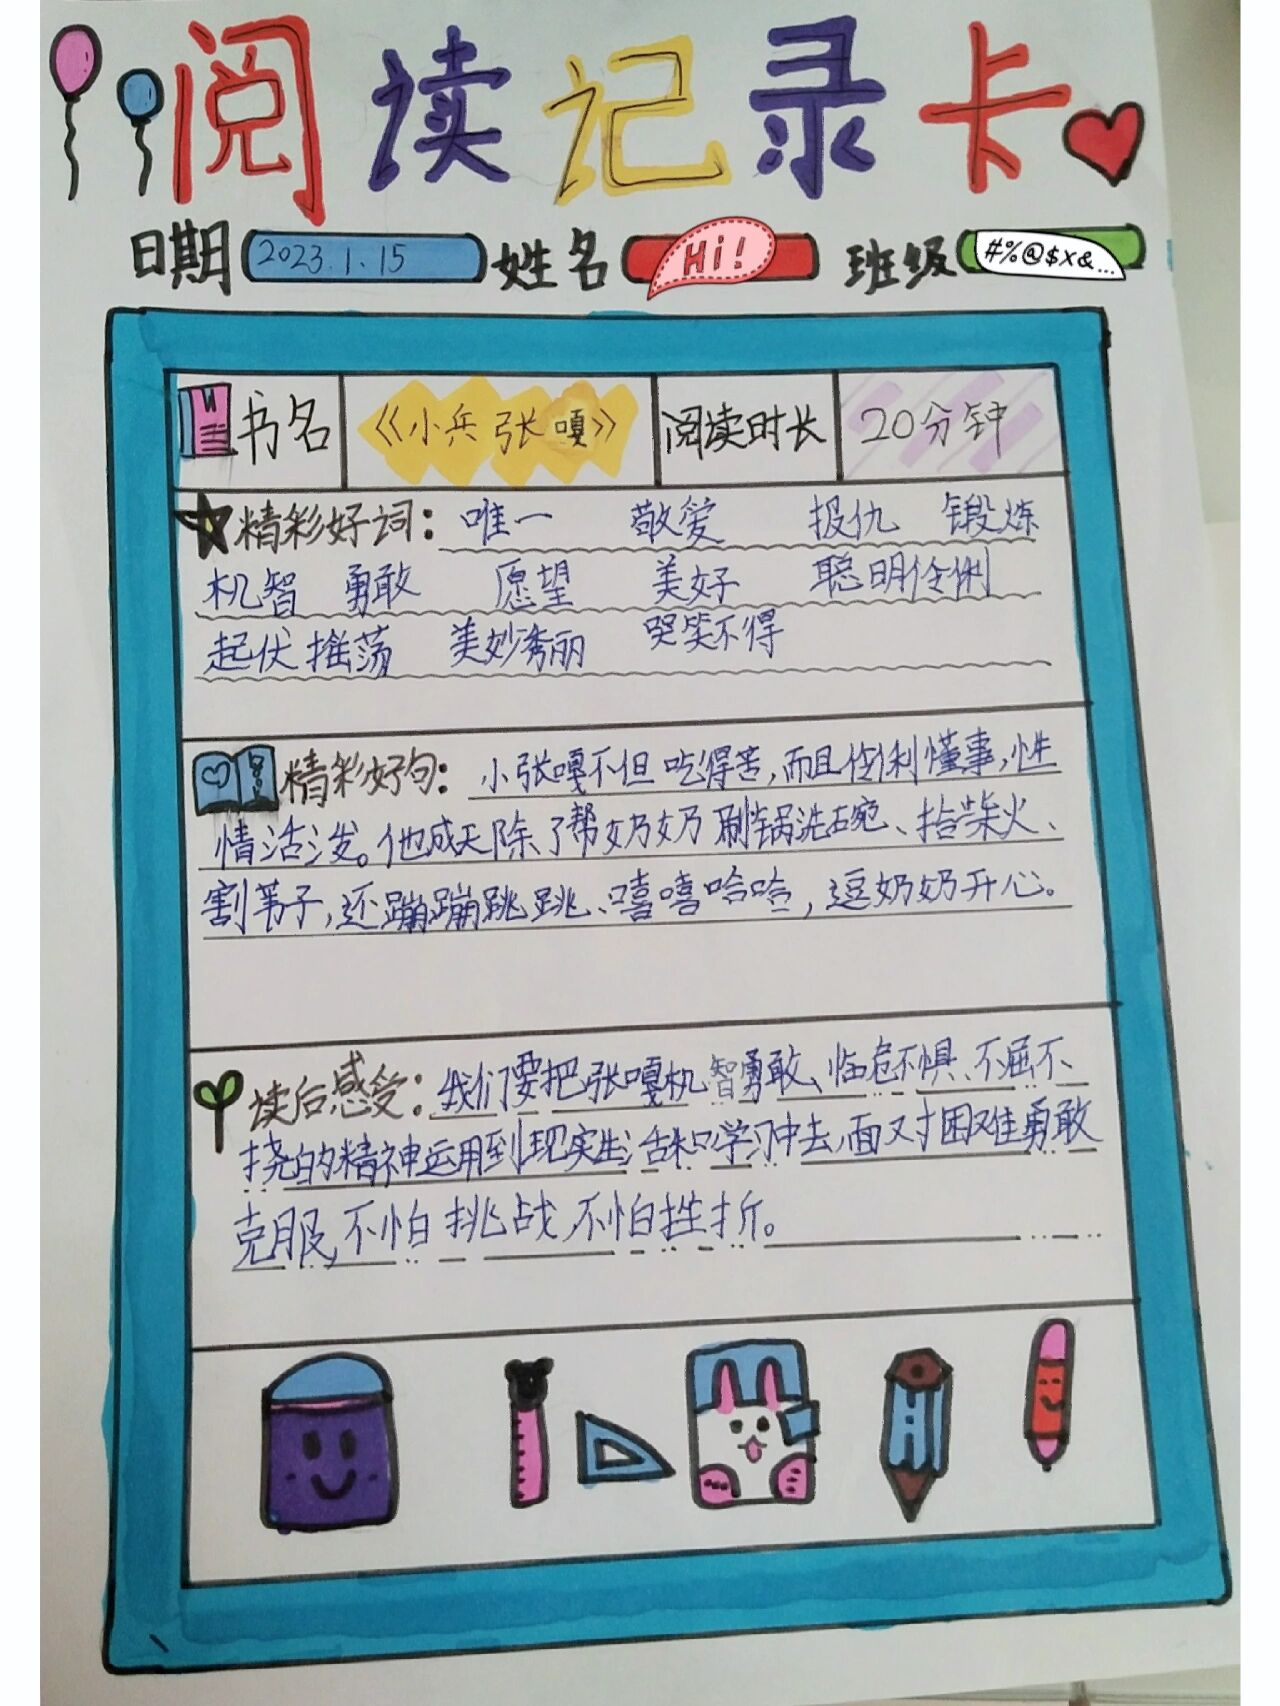 阅读记录卡
日期 2023.1.15 姓名 Hi! 班级 #%@$X&...
书名 《小兵张嘎》 阅读时长 20分钟
精彩好词: 唯一 敬爱 报仇 锻炼
机智 勇敢 愿望 美好 聪明伶俐
起伏推荡 美妙秀丽 哭笑不得
精彩好句: 小张嘎不但吃得苦,而且伶俐懂事,性
情活泼。他成天除了帮奶奶刷锅洗碗、拾柴火、
割苇子,还蹦蹦跳跳、嘻嘻哈哈,逗奶奶开心。
读后感受: 我们要把张嘎机智勇敢、临危不惧、不屈不
挠的精神运用到现实生活和学习中去,面对困难勇敢
克服,不怕挑战,不怕挫折。